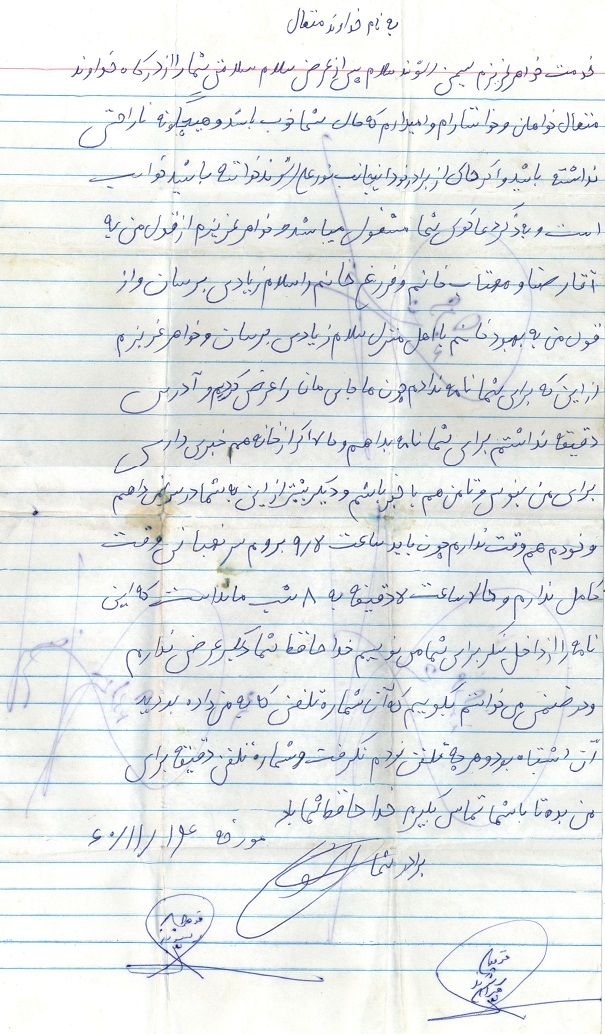 به نام خداوند متعال
خدمت خواهر عزیزم سیمین سلام پس از عرض سلام سلامتی شما را از درگاه خداوند
متعال خواهان و خواستارم و امیدارم که حال شما خوب باشد و هیچگونه ناراحتی
نداشته باشید و اگر حالی از برادر خود اینجانب نورعلی خواسته باشید خوب
است و به دگر دعاگوی شما مشغول میباشد خواهر عزیزم از قول من به
آقا رضا و مهتاب خانم و فرخ خانم را سلام زیادی برسان و از
قول من به بهبود خانم با اهل منزل سلام زیادی برسان و خواهر عزیزم
از این که برای شما نامه ندادم چون ما جای مانا را عوض کردیم و آدرس
دقیقه نداشتم برای شما نامه بداهم و حالا اگر از خانه هم خبری داری
برای من بنویس و تا من هم با خبر باشم و دیگر بیشتر از این به شما دردسر نمی داهم
و خودم هم وقت ندارم چون باید ساعت ۹ بروم سر نهبانی وقت
کامل ندارم و حالا ساعت ۷ دقیقه به ۸ شب مانداست که این
نامه را از داخل سنگر برای شما می نویسم خدا حافظ شما دگیر عرض ندارم
و در ضمن می خواستم بگویم که آن شماره تلفن که به من داده بودید
آن اشتباه بود و هر چه تلفن زدم نگرفت و شماره تلفن دقیقه برای
من بده تا با شما تماس بگیرم خدا حافظ شما
مورخه ۶۰/۱۱/۱۴
برادر شما